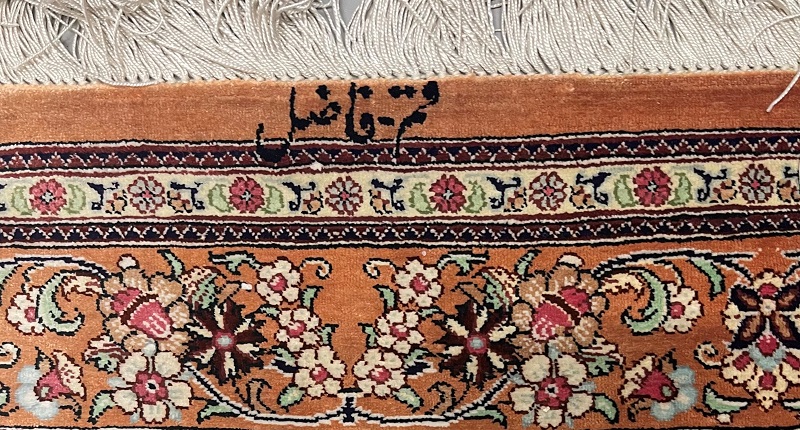 قم-فاضل